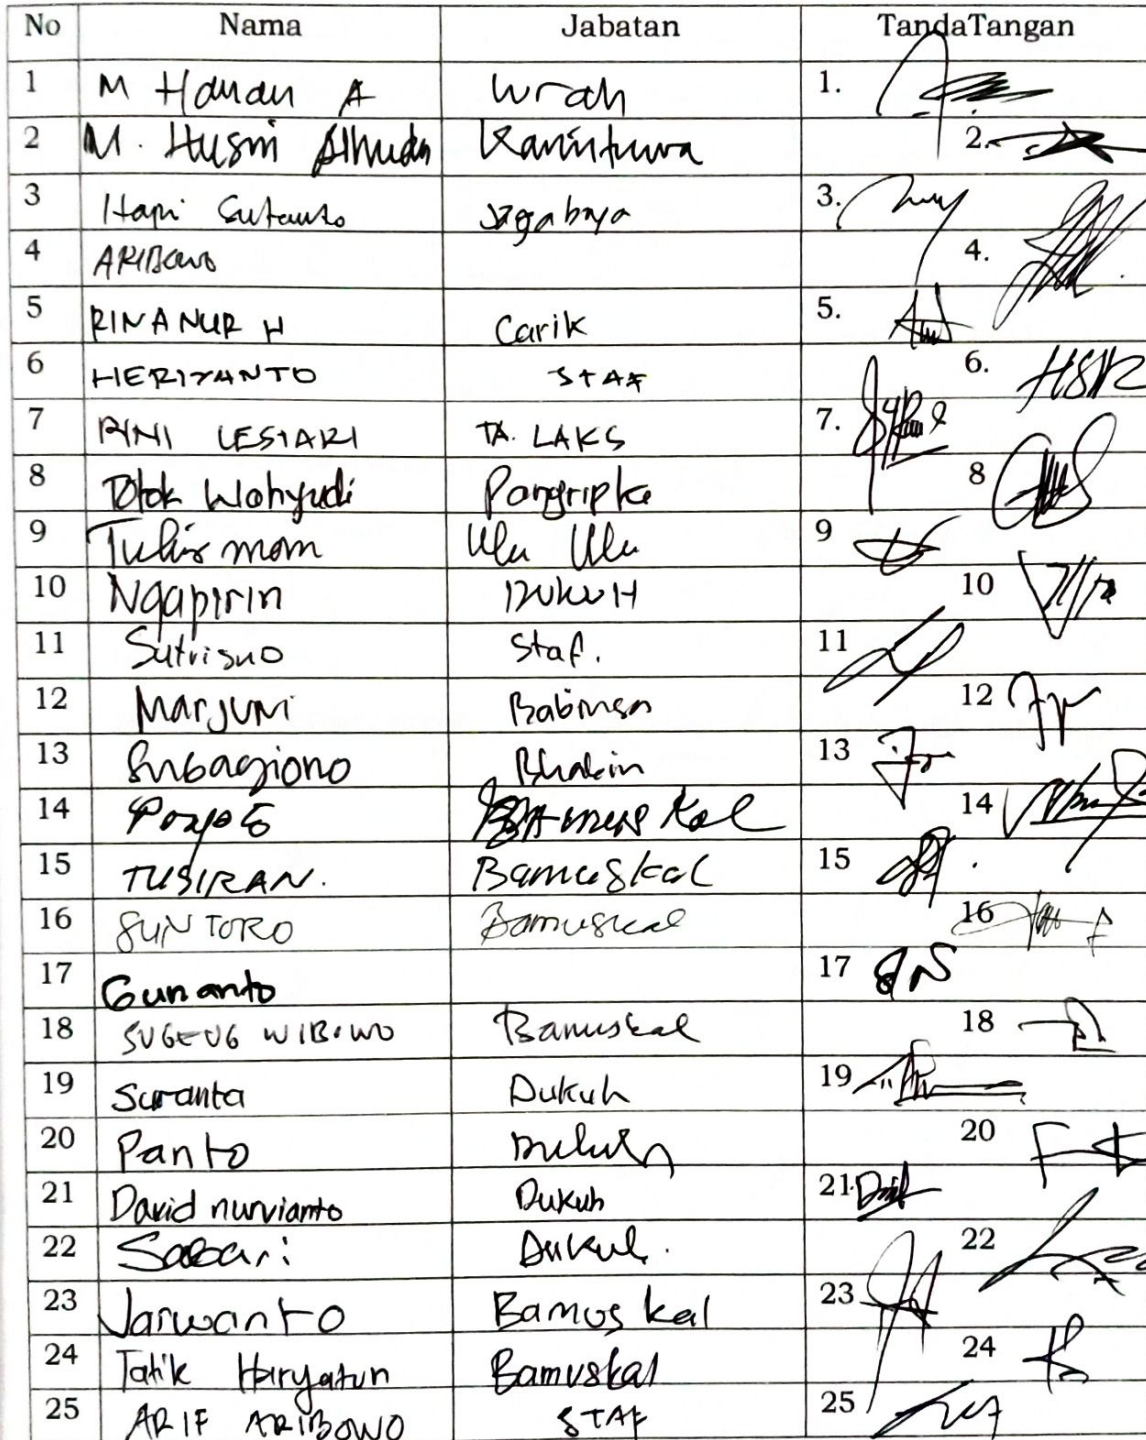 No Nama Jabatan TandaTangan
1 M Hanan A Lurah 1.
2 M. Husni Alhuda Kamituwa 2.
3 Hapi Sutanto Jagabaya 3.
4 ARIBOWO 4.
5 RINA NUR H Carik 5.
6 HERIYANTO STAF 6.
7 RINI LESTARI TA. LAKS 7.
8 Totok Wahyudi Pangripto 8
9 Tukisman Ulu Ulu 9
10 Ngapirin DUKUH 10
11 Sutrisno Staf. 11
12 Marjuni Babinsa 12
13 Subagiono Bhabin 13
14 Bamuskal 14
15 TUGIRAN. Bamuskal 15
16 SUNTORO Bamuskal 16
17 Gunanto 17
18 SUGENG WIBOWO Bamuskal 18
19 Suranta Dukuh 19
20 Panto Dukuh 20
21 David nurvianto Dukuh 21
22 Sabari Dukuh. 22
23 Jarwanto Bamuskal 23
24 Tatik Haryatun Bamuskal 24
25 ARIF ARIBOWO STAF 25